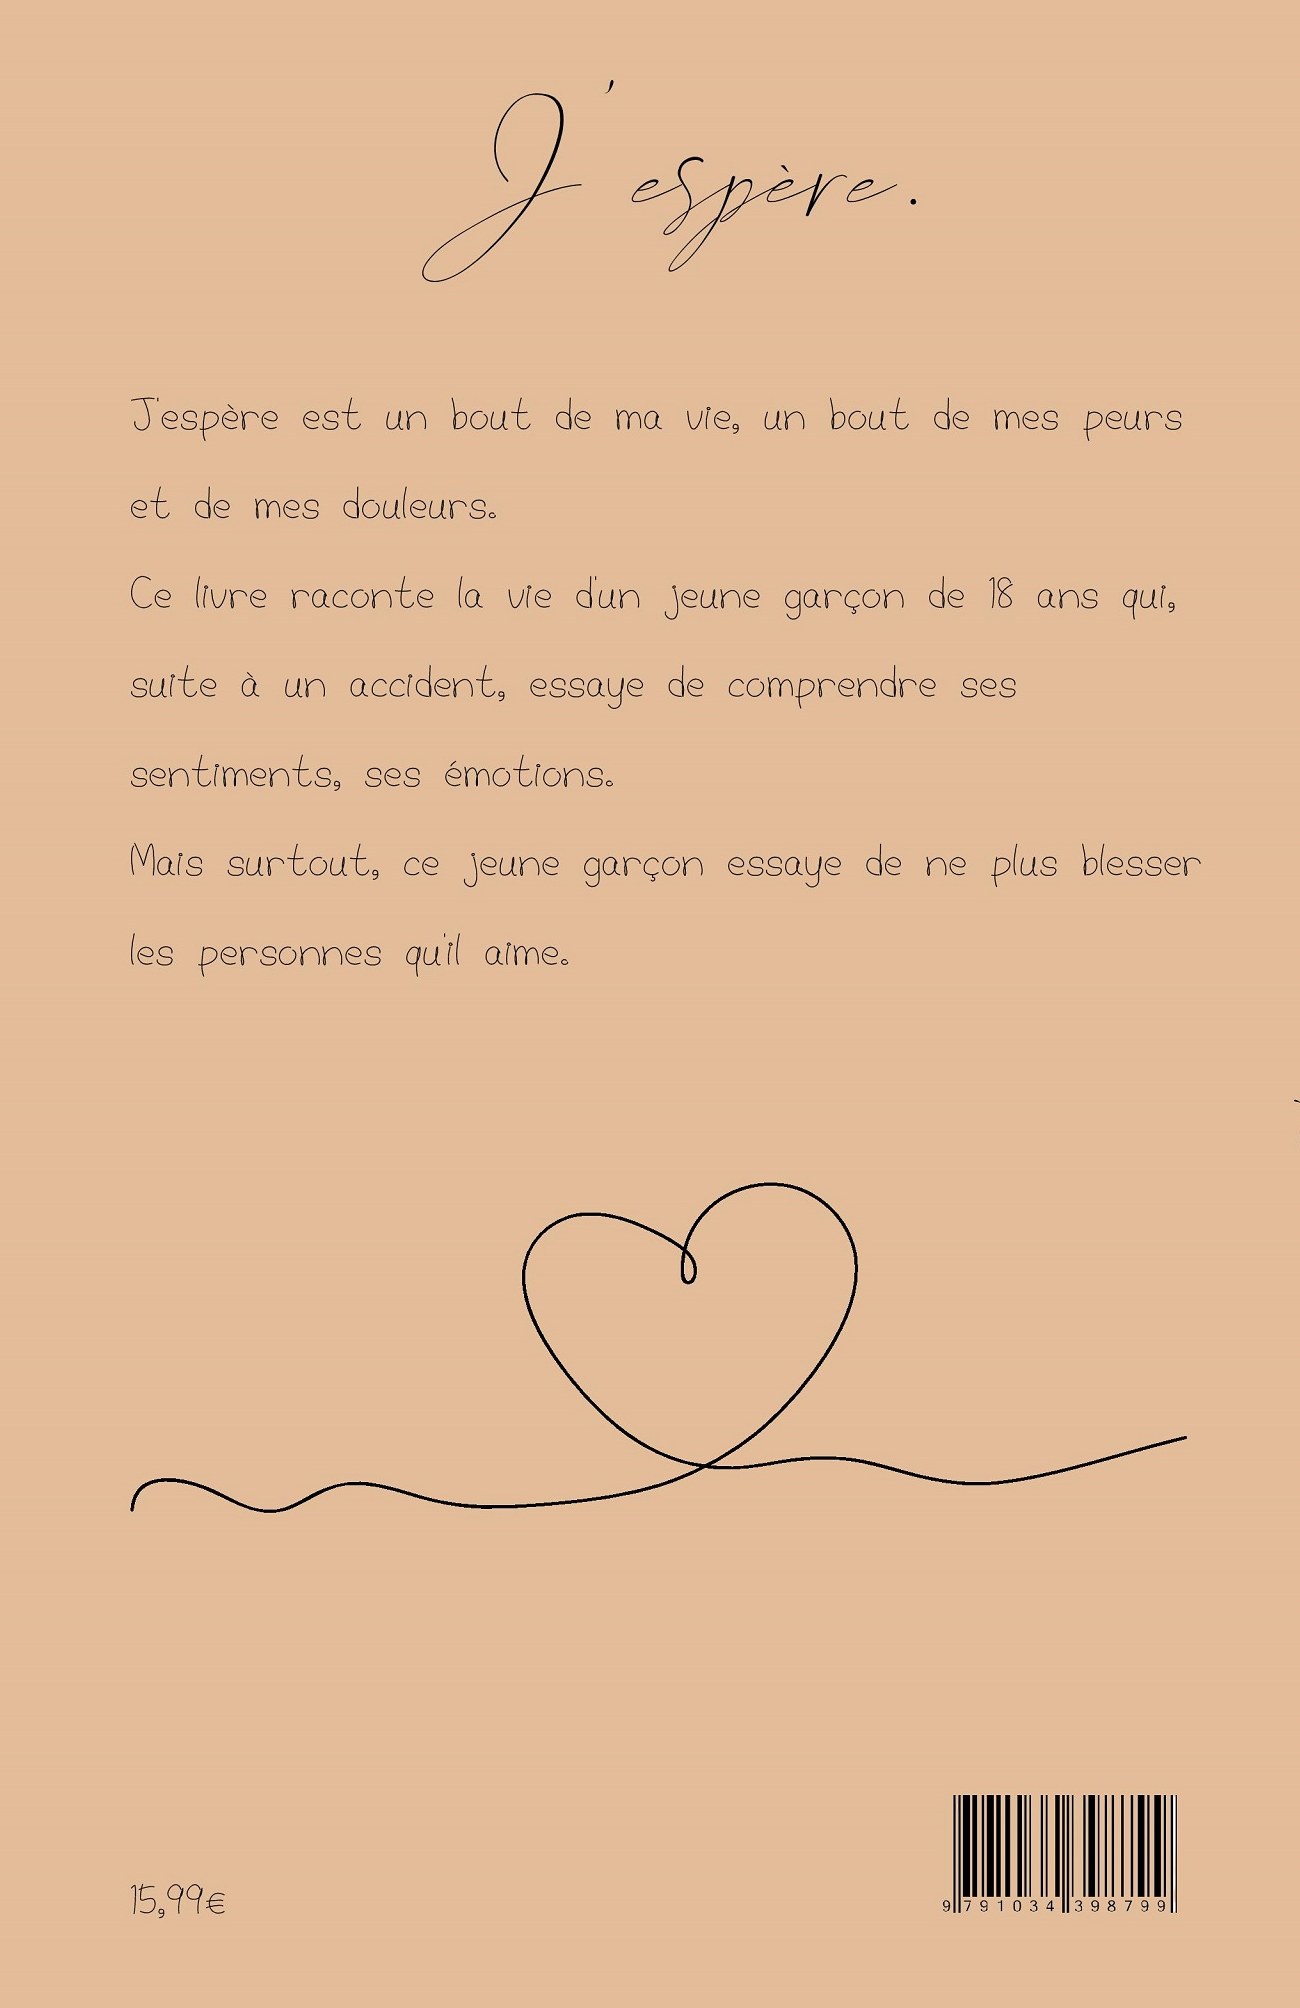 J'espère.
J'espère est un bout de ma vie, un bout de mes peurs
et de mes douleurs.
Ce livre raconte la vie d'un jeune garçon de 18 ans qui,
suite à un accident, essaye de comprendre ses
sentiments, ses émotions.
Mais surtout, ce jeune garçon essaye de ne plus blesser
les personnes qu'il aime.
15,99€
9 791034 398799